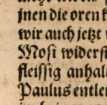 jnen die oren
wir auch jetzt
Mosi widerst
fleissig anhal
Paulus entlot